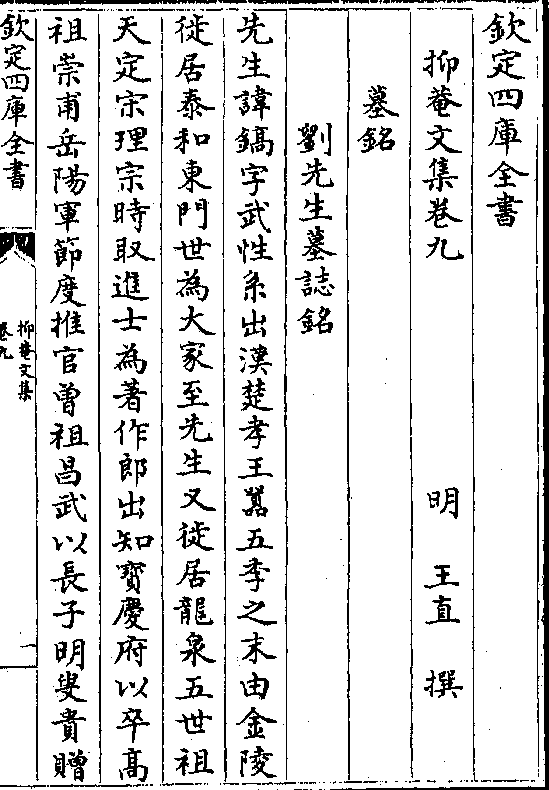 欽定四庫全書
抑菴文集卷九
明 王直 撰
墓銘
劉先生墓誌銘
先生諱鎬字武性系出漢楚孝王囂五季之末由金陵
徙居泰和東門世為大家至先生又徙居龍泉五世祖
天定宋理宗時取進士為著作郎出知寳慶府以卒髙
祖崇甫岳陽軍節度推官曽祖昌武以長子明叟貴贈
欽定四庫全書
抑菴文集
卷九
一